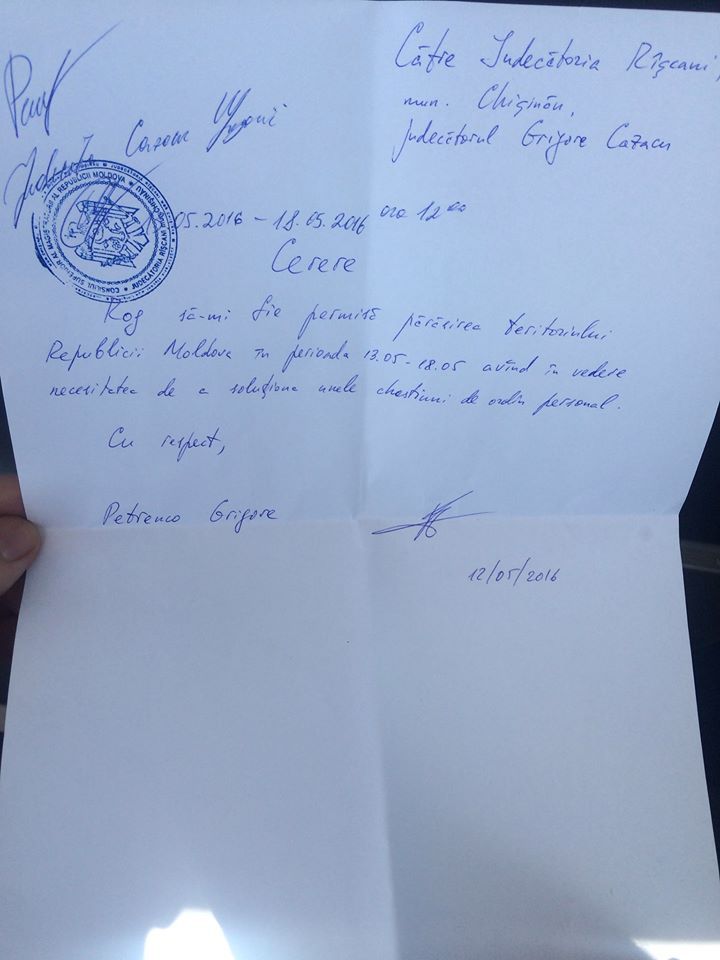 Către Judecătoria Rîşcani,
mun. Chişinău,
judecătorul Grigore Cazacu
Cazacu
05.2016 – 18.05.2016 ora 12 00
CONSILIUL SUPERIOR AL MAGISTRATURII AL REPUBLICII MOLDOVA * JUDECĂTORIA RÎŞCANI MUN. CHIŞINĂU
Cerere
Rog să-mi fie permisă părăsirea teritoriului
Republicii Moldova în perioada 13.05-18.05 avînd în vedere
necesitatea de a soluţiona unele chestiuni de ordin personal.
Cu respect,
Petrenco Grigore
12/05/2016